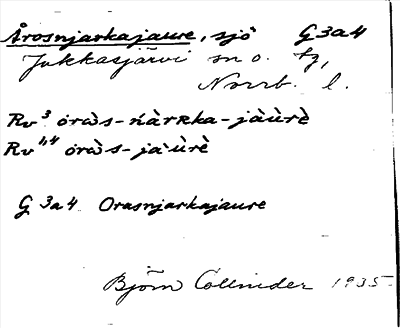 Årosnjarkajaure, sjö G 3a4
Jukkasjärvi sn o. tg,
Norrb. l.
Rv³ óràs-ńàrʀka-jàùrè
Rv¹,⁴ óràs-jàùrè
G 3a4 Orasnjarkajaure
Björn Collinder 1935